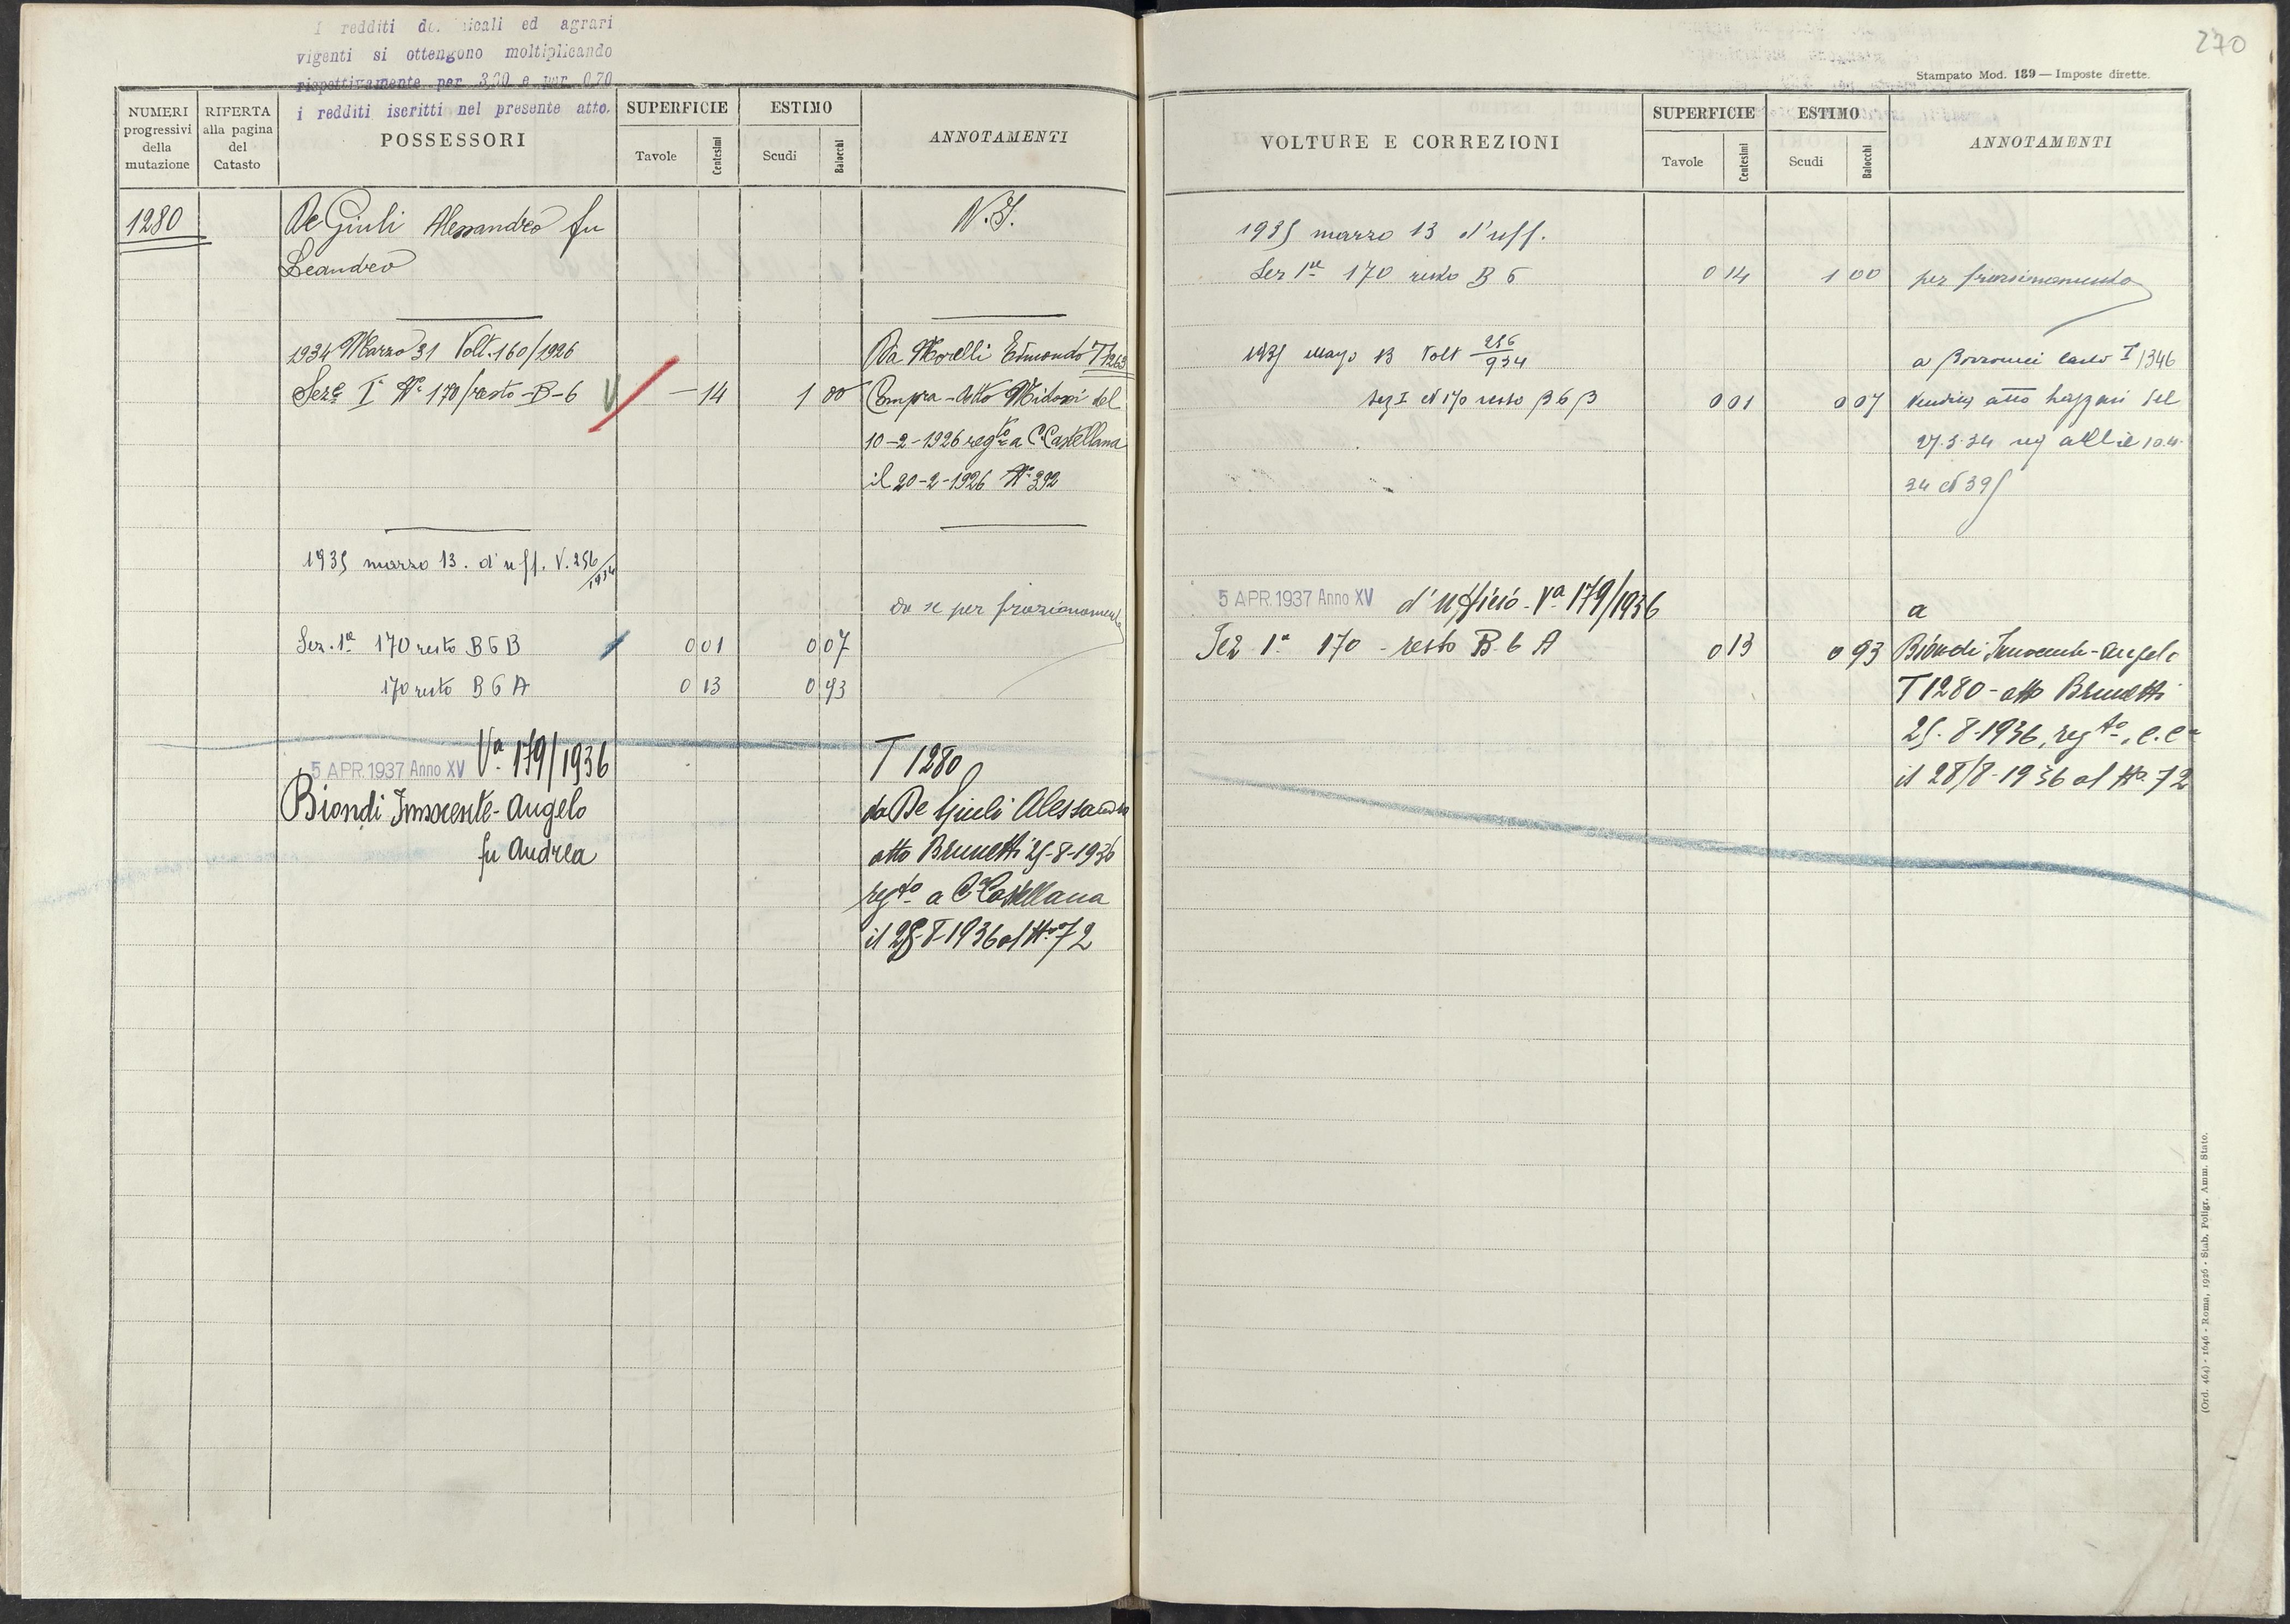 270
I redditi do nicali ed agrari
vigenti si ottengono moltiplicando
rispettivamente per 3,20 e per 0,70
i redditi iscritti nel presente atto.
NUMERI progressivi della mutazione
RIFERTA alla pagina del Catasto
POSSESSORI
SUPERFICIE
Tavole Centesimi
ESTIMO
Scudi Baiocchi
ANNOTAMENTI
1280
De Giuli Alessandro fu
Leandro
N.I.
1934 Marzo 31 Volt. 160/1926
Sez.e I.a N.o 170/resto-B-6 V — 14 1 00
Da Morelli Edmondo T1263
Compra - Atto Midossi del
10-2-1926 reg.to a C.Castellana
il 20-2-1926 N.o 392
1935 marzo 13. d'uff. V. 256/1934
da se per frazionamento
Sez. 1a 170 resto B 6 B 0 01 0 07
170 resto B 6 A 0 13 0 93
5 APR. 1937 Anno XV Va 179/1936
Biondi Innocente-Angelo
fu Andrea
T 1280
da De Giuli Alessandro
atto Brunetti 25-8-1936
reg.to a C.Castellana
il 28-8-1936 al No 72
Stampato Mod. 139 — Imposte dirette.
VOLTURE E CORREZIONI
SUPERFICIE
Tavole Centesimi
ESTIMO
Scudi Baiocchi
ANNOTAMENTI
1935 marzo 13 d'uff.
Sez 1a 170 resto B 6 0 14 1 00 per frazionamento
1935 marzo 13 Volt 256/934
a Carlo T 1346
Sez I N 170 resto B 6 B 0 01 0 07
Vendita atto del
27.3.34 reg 10.4.
34 N 395
5 APR. 1937 Anno XV d'Ufficio - Va 179/1936
a
Sez 1a 170 - resto B. 6 A 0 13 0 93
Biondi Innocente-Angelo
T 1280 - atto Brunetti
25-8-1936, reg.to C.Ca
il 28/8-1936 al No 72
(Ord. 464) - 1646 - Roma, 1926 - Stab. Poligr. Amm. Stato.